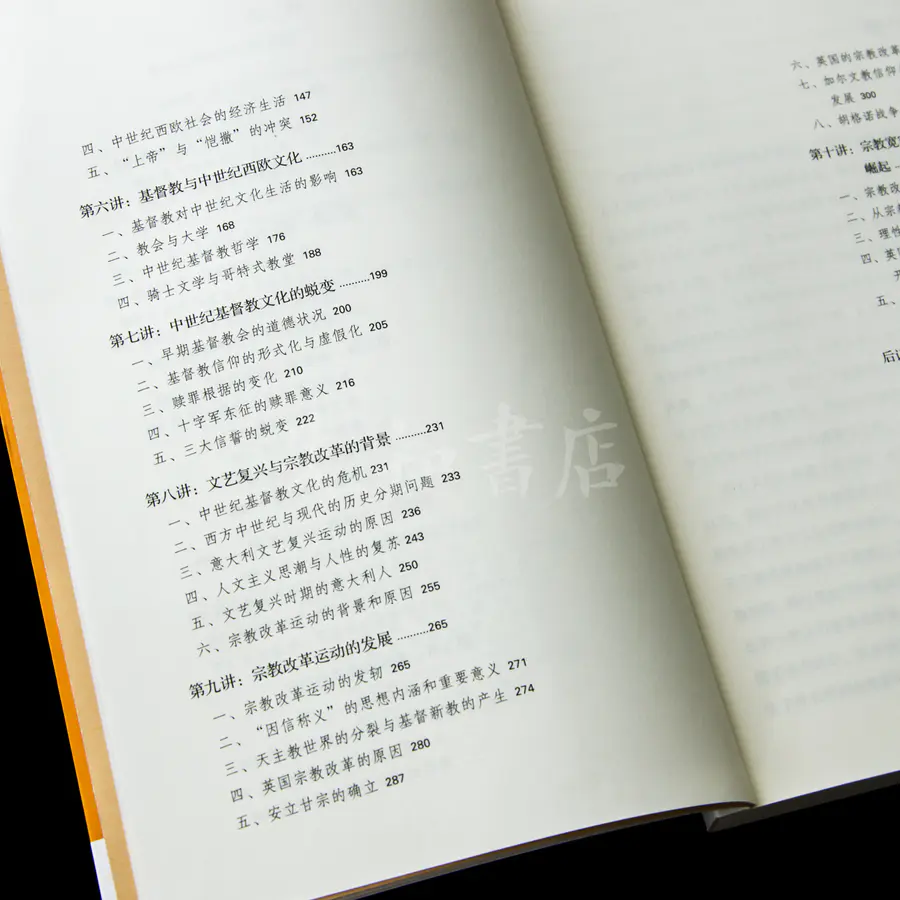 四、中世纪西欧社会的经济生活 147
五、“上帝”与“恺撒”的冲突 152
第六讲：基督教与中世纪西欧文化 .........163
一、基督教对中世纪文化生活的影响 163
二、教会与大学 168
三、中世纪基督教哲学 176
四、骑士文学与哥特式教堂 188
第七讲：中世纪基督教文化的蜕变 .........199
一、早期基督教会的道德状况 200
二、基督教信仰的形式化与虚假化 205
三、赎罪根据的变化 210
四、十字军东征的赎罪意义 216
五、三大信誓的蜕变 222
第八讲：文艺复兴与宗教改革的背景 .........231
一、中世纪基督教文化的危机 231
二、西方中世纪与现代的历史分期问题 233
三、意大利文艺复兴运动的原因 236
四、人文主义思潮与人性的复苏 243
五、文艺复兴时期的意大利人 250
六、宗教改革运动的背景和原因 255
第九讲：宗教改革运动的发展 .........265
一、宗教改革运动的发轫 265
二、“因信称义”的思想内涵和重要意义 271
三、天主教世界的分裂与基督新教的产生 274
四、英国宗教改革的原因 280
五、安立甘宗的确立 287
六、英国的宗教改革
七、加尔文教信仰
发展 300
八、胡格诺战争
第十讲：宗教宽
崛起
一、宗教改
二、从宗
三、理性
四、英
五、
后记
書店